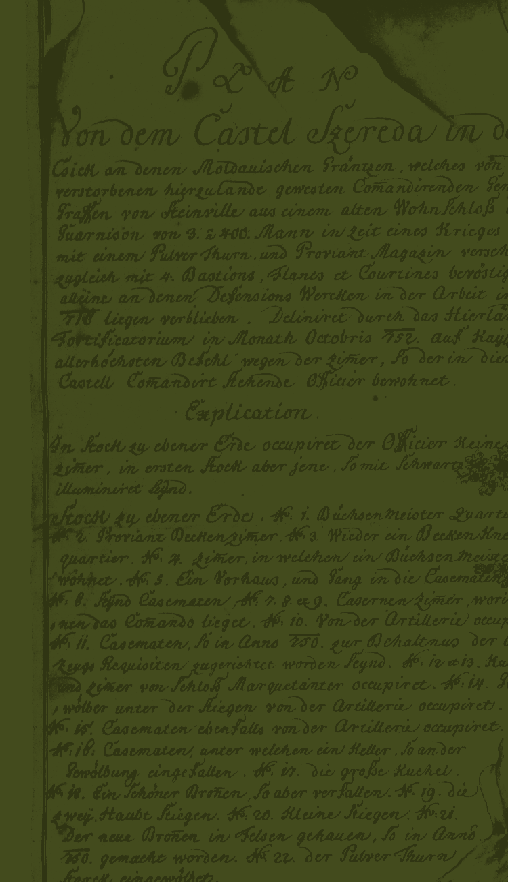 PLAN
Von dem Castel Szereda in
Csick an denen Moldauischen Gräntzen, welches von
verstorbenen hierzulande gewesten Comandirenden
von Steinville aus einem alten WohnSchloß
Guarnison von 3. â 400. Mann in Zeit eines Krieges
mit einem Pulver Thurn, und Proviant Magazin
zugleich mit 4. Bastions, Flancs et Courtines
alleine an denen Defensions Wercken in der Arbeit
liegen verblieben. Deliniret durch das
Fortificatorium in Monath Octobris 752. auf
allerhöchsten Befehl wegen der zimer, So der in
Castell Comandirt stehende Officier bewohnet.
Explication.
In Stock zu ebener Erde occupiret der Officier
zimer, in ersten Stock aber jene, So mit Schwartz
illuminiret Seynd.
Stock zu ebener Erde. N. 1. Büchsen Meister
N. 2. Proviant Becken zimer, N. 3. Wieder ein Becken
quartier. N. 4. zimer, in welchen ein Büchsen
wohnet. N. 5. Ein Vorhaus, und Gang in die
N. 6. Seynd Casematen N. 7. 8 et 9. Casernen zimer,
das Comando lieget. N. 10. Von der Artillerie
N. 11. Casematen, So in Anno 750. zur Behaltnus der
Zeugs Requisiten zugerichtet worden Seynd. N. 12 et 13.
und zimer von Schloß Marquetänter occupiret. N. 14.
wölber unter der Stiegen von der Artillerie occupiret.
N. 15. Casematen ebenfalls von der Artillerie occupiret.
N. 16. Casematen, unter welchen ein Keller, So an der
Gewölbung eingefallen. N. 17. die große Kuchel.
N. 18. Ein Schöner Bronen, So aber verfallen. N. 19. die
zwey Haubt Stiegen. N. 20. Kleine Stiegen. N. 21.
Der neue Bronen in Felsen gehauen, So in Anno
750. gemacht worden. N. 22. der Pulver Thurn